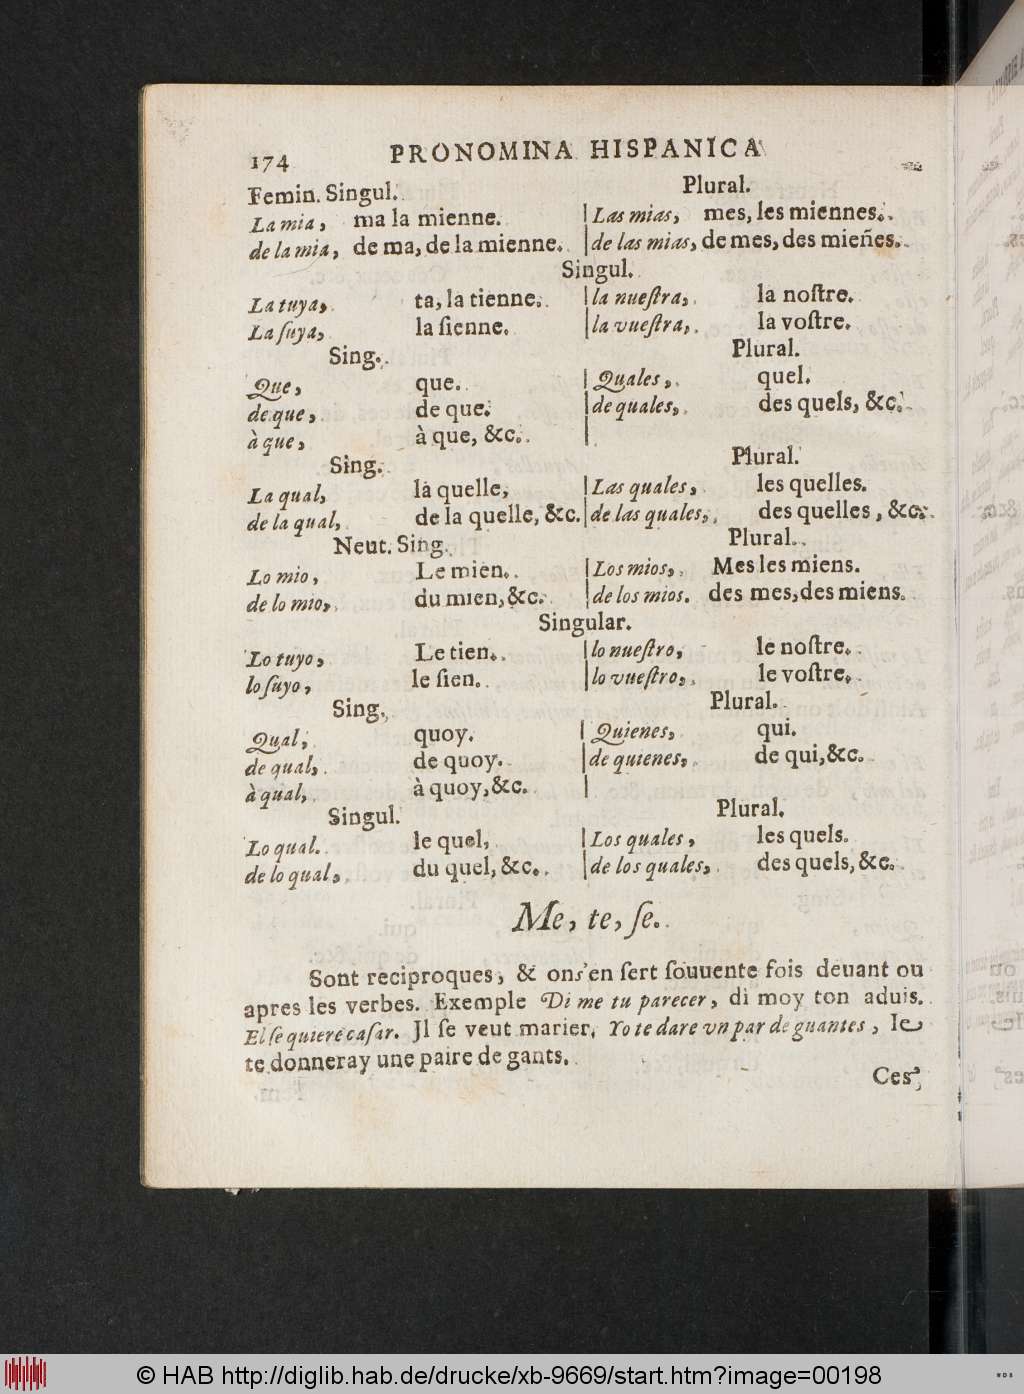 174 PRONOMINA HISPANICA
Femin. Singul. Plural.
La mia, ma la mienne. | Las mias, mes, les miennes.
de la mia, de ma, de la mienne. | de las mias, de mes, des mieñes.
Singul.
La tuya, ta, la tienne. | la nueſtra, la noſtre.
La ſuya, la ſienne. | la vueſtra, la voſtre.
Sing. Plural.
Que, que. | Quales, quel.
de que, de que. | de quales, des quels, &c.
à que, à que, &c. |
Sing. Plural.
La qual, là quelle, | Las quales, les quelles.
de la qual, de la quelle, &c. | de las quales, des quelles, &c.
Neut. Sing. Plural.
Lo mio, Le mien. | Los mios, Mes les miens.
de lo mio, du mien, &c. | de los mios. des mes, des miens.
Singular.
Lo tuyo, Le tien. | lo nueſtro, le noſtre.
lo ſuyo, le ſien. | lo vueſtro, le voſtre.
Sing. Plural.
Qual, quoy. | Quienes, qui.
de qual, de quoy. | de quienes, de qui, &c.
à qual, à quoy, &c. |
Singul. Plural.
Lo qual. le quel, | Los quales, les quels.
de lo qual, du quel, &c. | de los quales, des quels, &c.
Me, te, ſe.
Sont reciproques, & ons'en ſert ſouuente fois deuant ou
apres les verbes. Exemple Di me tu parecer, di moy ton aduis.
El ſe quiere caſar. Jl ſe veut marier, Yo te dare vn par de guantes, Ie
te donneray une paire de gants.
Ces
© HAB http://diglib.hab.de/drucke/xb-9669/start.htm?image=00198